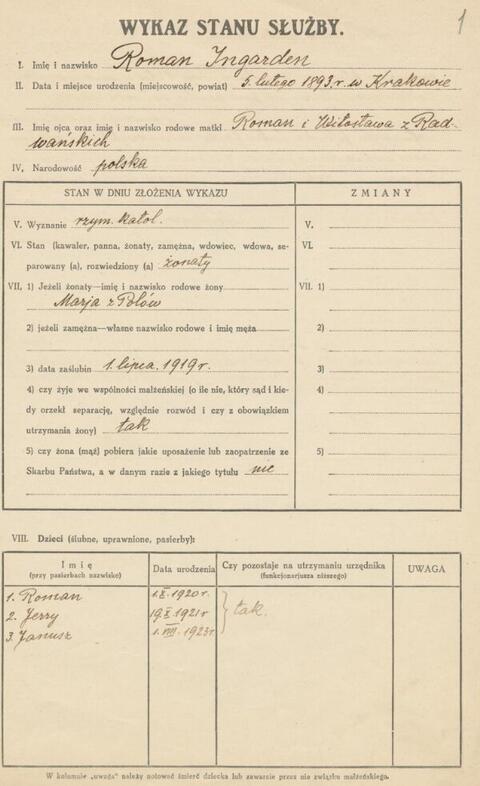 1
WYKAZ STANU SŁUŻBY.
I. Imię i nazwisko Roman Ingarden
II. Data i miejsce urodzenia (miejscowość, powiat) 5. lutego 1893.r. w Krakowie
III. Imię ojca oraz imię i nazwisko rodowe matki Roman i Witosława z Rad-
wańskich
IV. Narodowość polska
STAN W DNIU ZŁOŻENIA WYKAZU ZMIANY
V. Wyznanie rzym. katol. V.
VI. Stan (kawaler, panna, żonaty, zamężna, wdowiec, wdowa, se- VI.
parowany (a), rozwiedziony (a) żonaty
VII. 1) Jeżeli żonaty—imię i nazwisko rodowe żony VII. 1)
Marja z Polów
2) jeżeli zamężna—własne nazwisko rodowe i imię męża 2)
3) data zaślubin 1. lipca. 1919 r. 3)
4) czy żyje we wspólności małżeńskiej (o ile nie, który sąd i kie- 4)
dy orzekł separację, względnie rozwód i czy z obowiązkiem
utrzymania żony) tak
5) czy żona (mąż) pobiera jakie uposażenie lub zaopatrzenie ze 5)
Skarbu Państwa, a w danym razie z jakiego tytułu nie
VIII. Dzieci (ślubne, uprawnione, pasierby):
Imię Data urodzenia Czy pozostaje na utrzymaniu urzędnika UWAGA
(przy pasierbach nazwisko) (funkcjonarjusza niższego)
1. Roman 1.X.1920 r.
2. Jerzy 19.X.1921 r tak.
3. Janusz 1.VIII.1923 r.
W kolumnie „uwaga" należy notować śmierć dziecka lub zawarcie przez nie związku małżeńskiego.